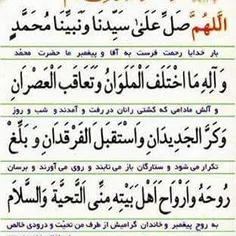 اَللّهُمَّ صَلِّ عَلَىٰ سَيِّدِنَا وَنَبِيِّنَا مُحَمَّدٍ
بار خدایا رحمت فرست به آقا و پیغمبر ما حضرت محمّد
وَآلِهِ مَا اخْتَلَفَ الْمَلَوَانِ وَتَعَاقَبَ الْعَصْرَانِ
و آلش مادامی که گشتی رانان در رفت و آمدند و شب و روز
وَكَرَّ الْجَدِيدَانِ وَاسْتَقْبَلَ الْفَرْقَدَانِ وَبَلِّغْ
تکرار می شود و ستارگان باز می تابند و روی می آورند و برسان
رُوحَهُ وَاَرْوَاحَ اَهْلِ بَيْتِهِ مِنِّى التَّحِيَّةَ وَالسَّلَامَ
به روح پیغمبر و خاندان گرامیش از طرف من تحیّت و درودی خالص